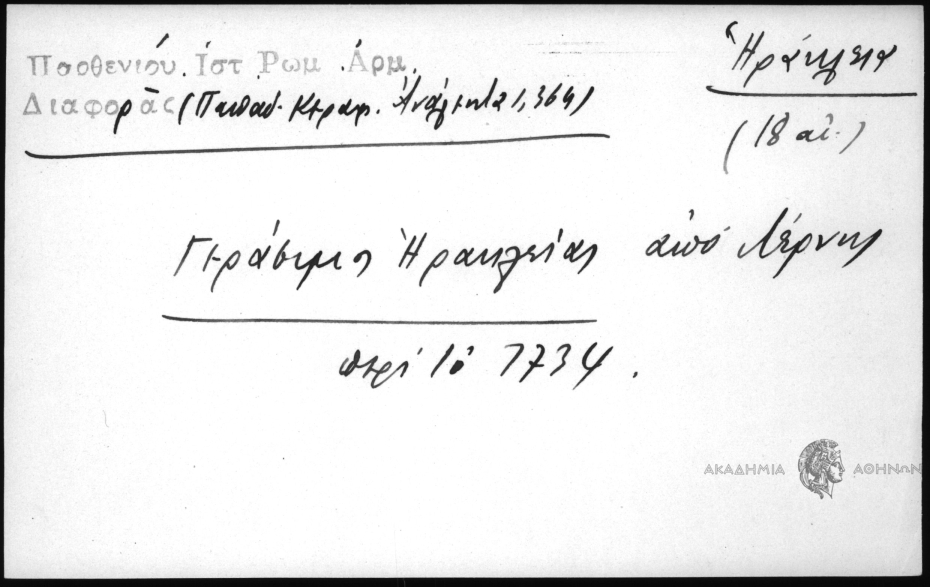 Παρθενίου. Ἱστ Ῥωμ. Ἁρμ.
Διαφορᾶς (Παπαδ. Κεραμ. Ἀνάλεκτα 1, 364)
Ἡράκλεια
(18 αἰ.)
Γεράσιμος Ἡρακλείας ἀπό Λέρνης
περί τό 1734.
ΑΚΑΔΗΜΙΑ ΑΘΗΝΩΝ